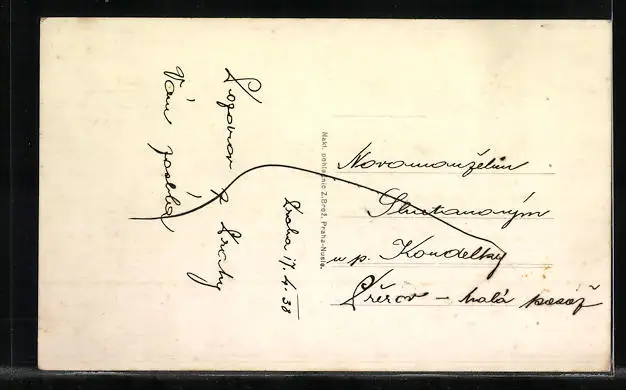 Pozdrav z Prahy
Vám zasílá
Praha 17. 4. 38
Nakl. pohlednic Z. Brož, Praha-Nusle.
Novomanželům
Smetanovým
u p. Koudelky
Přerov – malá pasáž